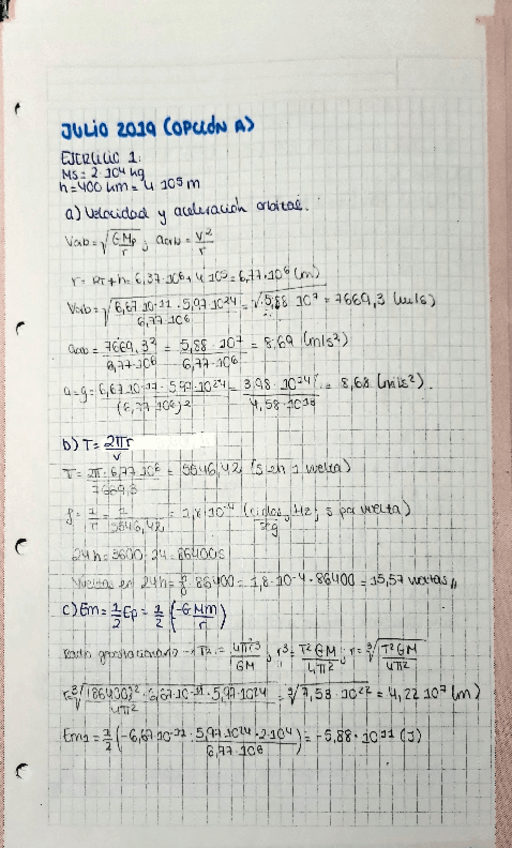 JULIO 2019 (OPCIÓN A)
EJERCICIO 1:
Ms = 2·10⁴ kg
h = 400 km = 4·10⁵ m
a) Velocidad y aceleración orbital.
Vorb = √(GMp/r) ; aorb = v²/r
r = RT + h = 6,37·10⁶ + 4·10⁵ = 6,77·10⁶ (m)
Vorb = √(6,67·10⁻¹¹ · 5,97·10²⁴ / 6,77·10⁶) = √(5,88·10⁷) = 7669,3 (m/s)
aorb = 7669,3² / 6,77·10⁶ = 5,88·10⁷ / 6,77·10⁶ = 8,69 (m/s²)
a = g = 6,67·10⁻¹¹ · 5,97·10²⁴ / (6,77·10⁶)² = 3,98·10¹⁴ / 4,58·10¹³ = 8,68 (m/s²).
b) T = 2πr/v
T = 2π·6,77·10⁶ / 7669,3 = 5546,42 (s en 1 vuelta)
f = 1/T = 1/5546,42 = 1,8·10⁻⁴ (ciclos/seg, Hz; s por vuelta)
24h = 3600·24 = 86400s
Vueltas en 24h = f·86400 = 1,8·10⁻⁴·86400 = 15,57 vueltas //
c) Em = ½Ep = ½(-GMm/r)
Radio geoestacionario → T² = 4π²r³/GM ; r³ = T²GM/4π² ; r = ∛(T²GM/4π²)
r = ∛((86400)² · 6,67·10⁻¹¹ · 5,97·10²⁴ / 4π²) = ∛(7,58·10²²) = 4,22·10⁷ (m)
Em1 = ½(-6,67·10⁻¹¹ · 5,97·10²⁴ · 2·10⁴ / 6,77·10⁶) = -5,88·10¹¹ (J)